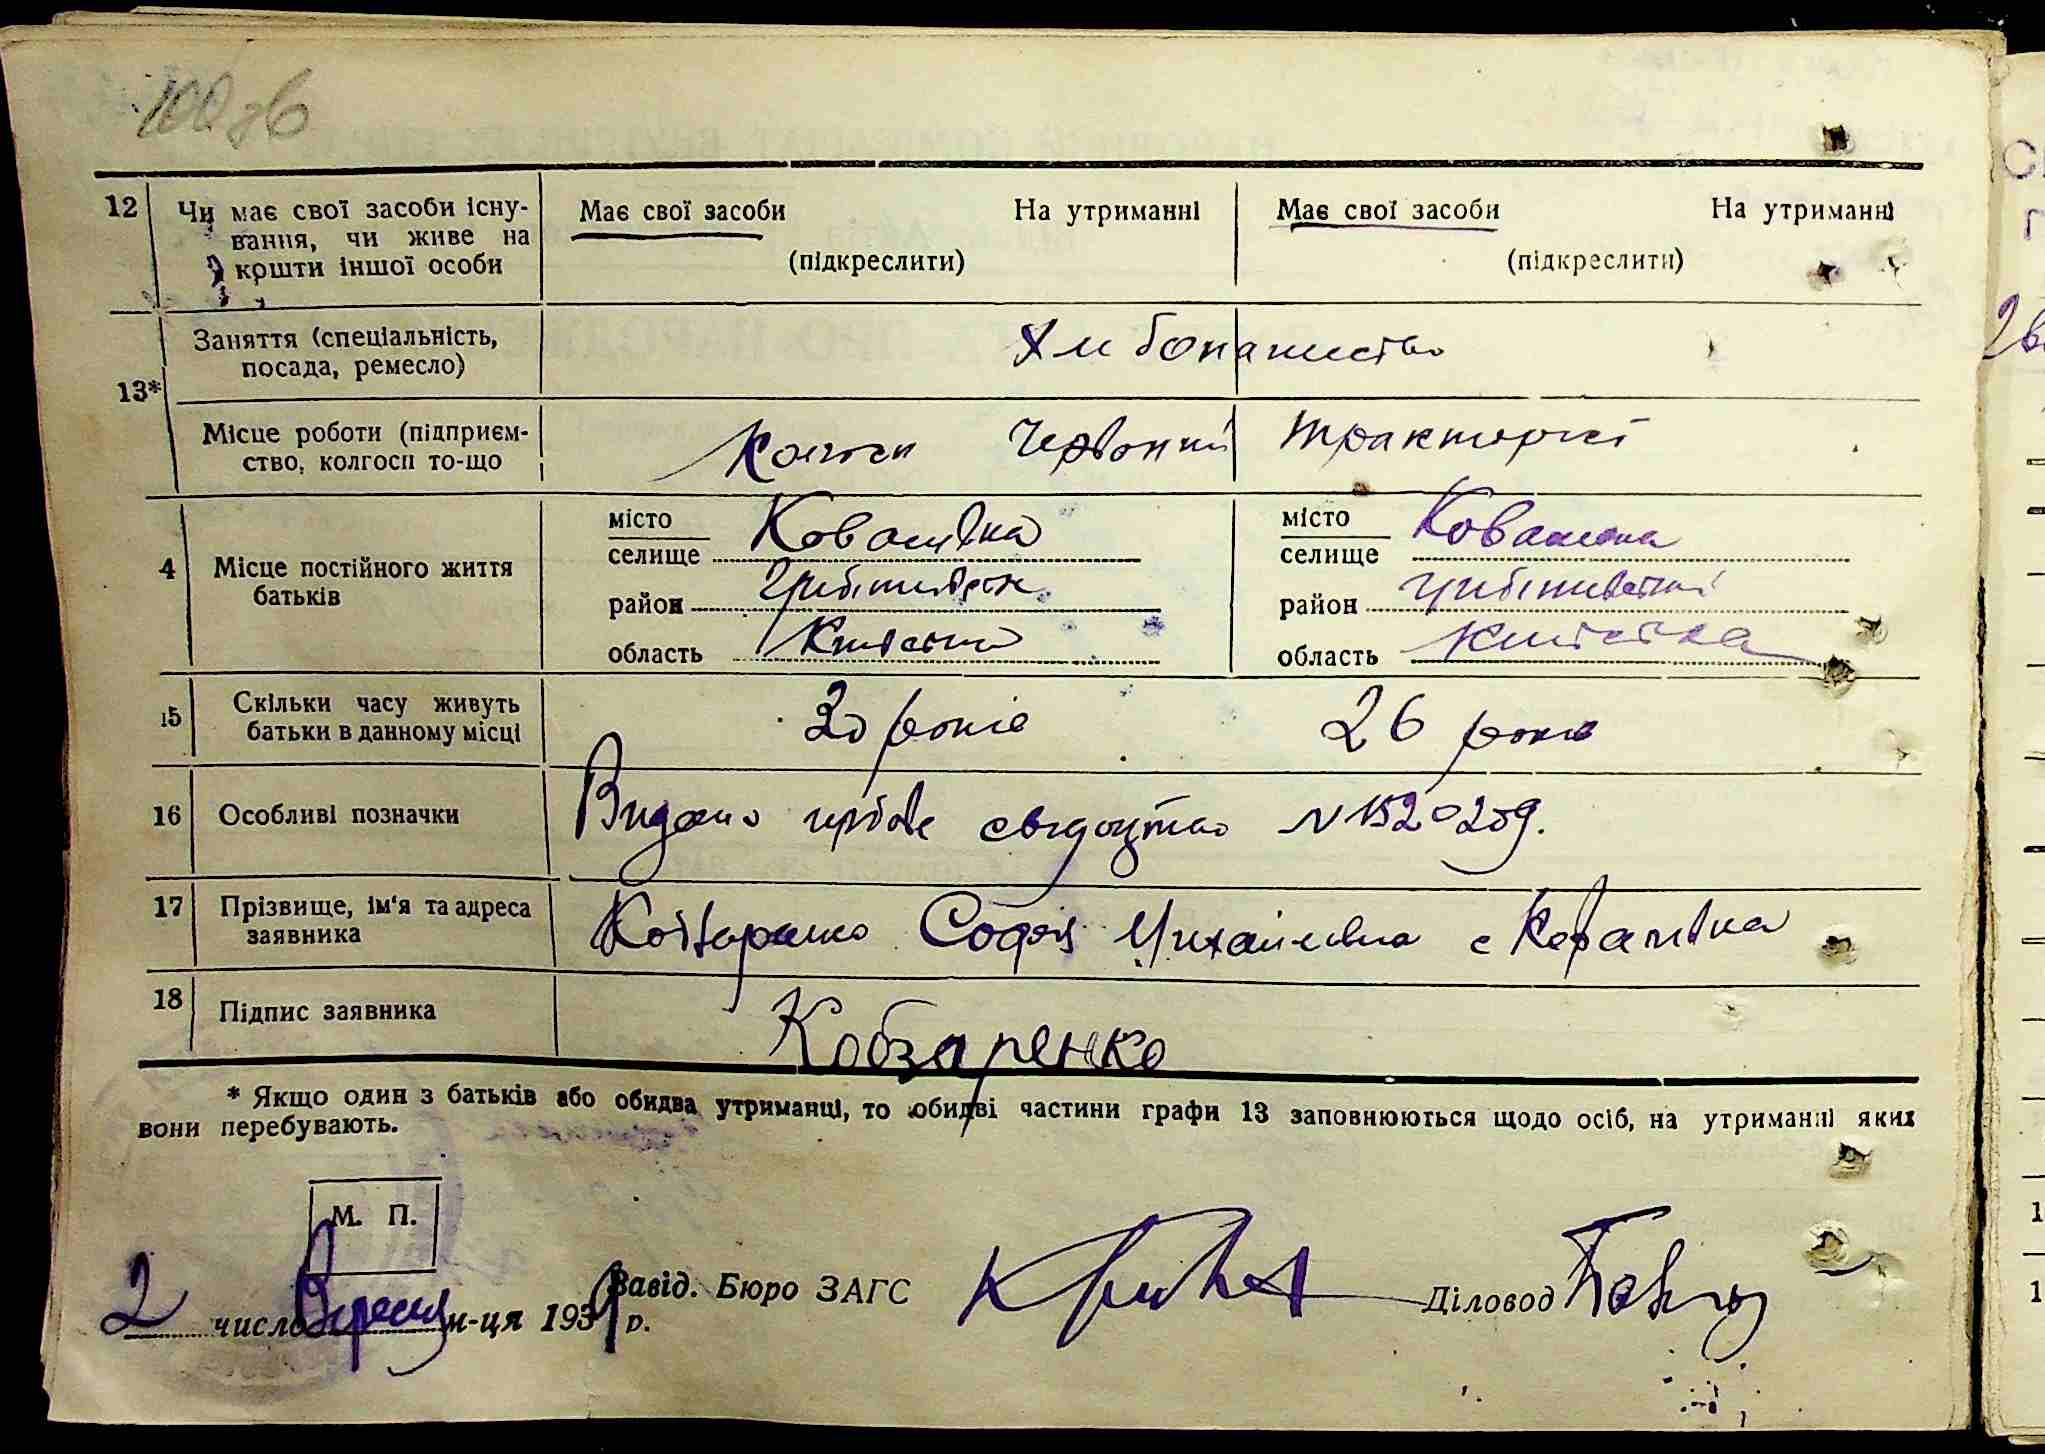 100 зв
12 Чи має свої засоби існу-
вання, чи живе на
кошти іншої особи
Має свої засоби На утриманні
(підкреслити)
Має свої засоби На утриманні
(підкреслити)
13*
Заняття (спеціальність,
посада, ремесло)
Хлібопашество
Місце роботи (підприєм-
ство, колгосп то-що
Колгосп Червоний тракторист
4 Місце постійного життя
батьків
місто
селище Ковалівка
район
область Київська
місто
селище Ковалівка
район
область Київська
15 Скільки часу живуть
батьки в данному місці
30 років 26 років
16 Особливі позначки
Видано гербове свідоцтво N 1520209.
17 Прізвище, ім'я та адреса
заявника
Кобзаренко Софія Михайлівна с Ковалівка
18 Підпис заявника
Кобзаренко
* Якщо один з батьків або обидва утриманці, то обидві частини графи 13 заповнюються щодо осіб, на утриманні яких
вони перебувають.
М. П.
2 число Вересня м-ця 193 р.
Завід. Бюро ЗАГС
Діловод